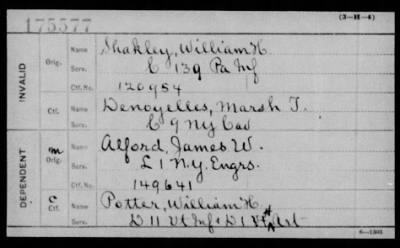 175577
(3-H-4)
INVALID
Orig.
Name Shakley, William H.
Serv. C 139 Pa Inf
Ctf. No. 120954
Ctf.
Name Denoyelles, Marsh T.
Serv. C 9 NY Cav
DEPENDENT
m
Orig.
Name Alford, James W.
Serv. L 1 N.Y. Engrs.
Ctf. No. 149641
C
Ctf.
Name Potter, William H.
Serv. D 11 Vt Inf & D 1 Vt H Art
6-1303